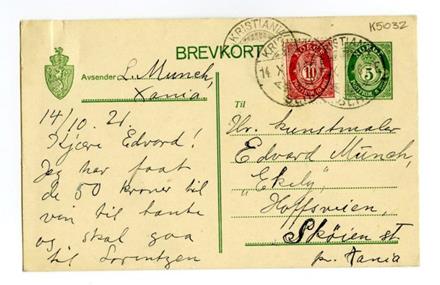 K5032
BREVKORT
KRISTIANIA
NORGE
10
NORGE
5
Avsender L. Munch,
Xania.
14/10. 21.
Kjære Edvard!
Jeg har faat
de 50 kroner til
ven til tante
og skal gaa
til Lorentzen
Til
Hr. kunstmaler
Edvard Münch,
"Ekely"
Hoffsveien,
Skøien st
pr. Xania